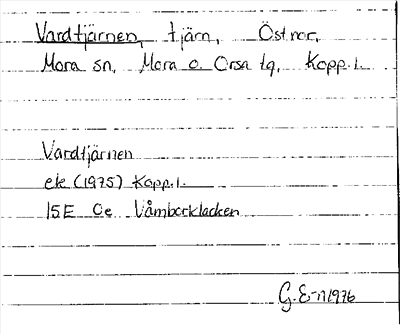 Vardtjärnen, tjärn, Östnor,
Mora sn, Mora o. Orsa tg, Kopp. l.
Vardtjärnen
ek (1975) Kopp. l.
15E 0e Våmborklacken
G. E-n 1976